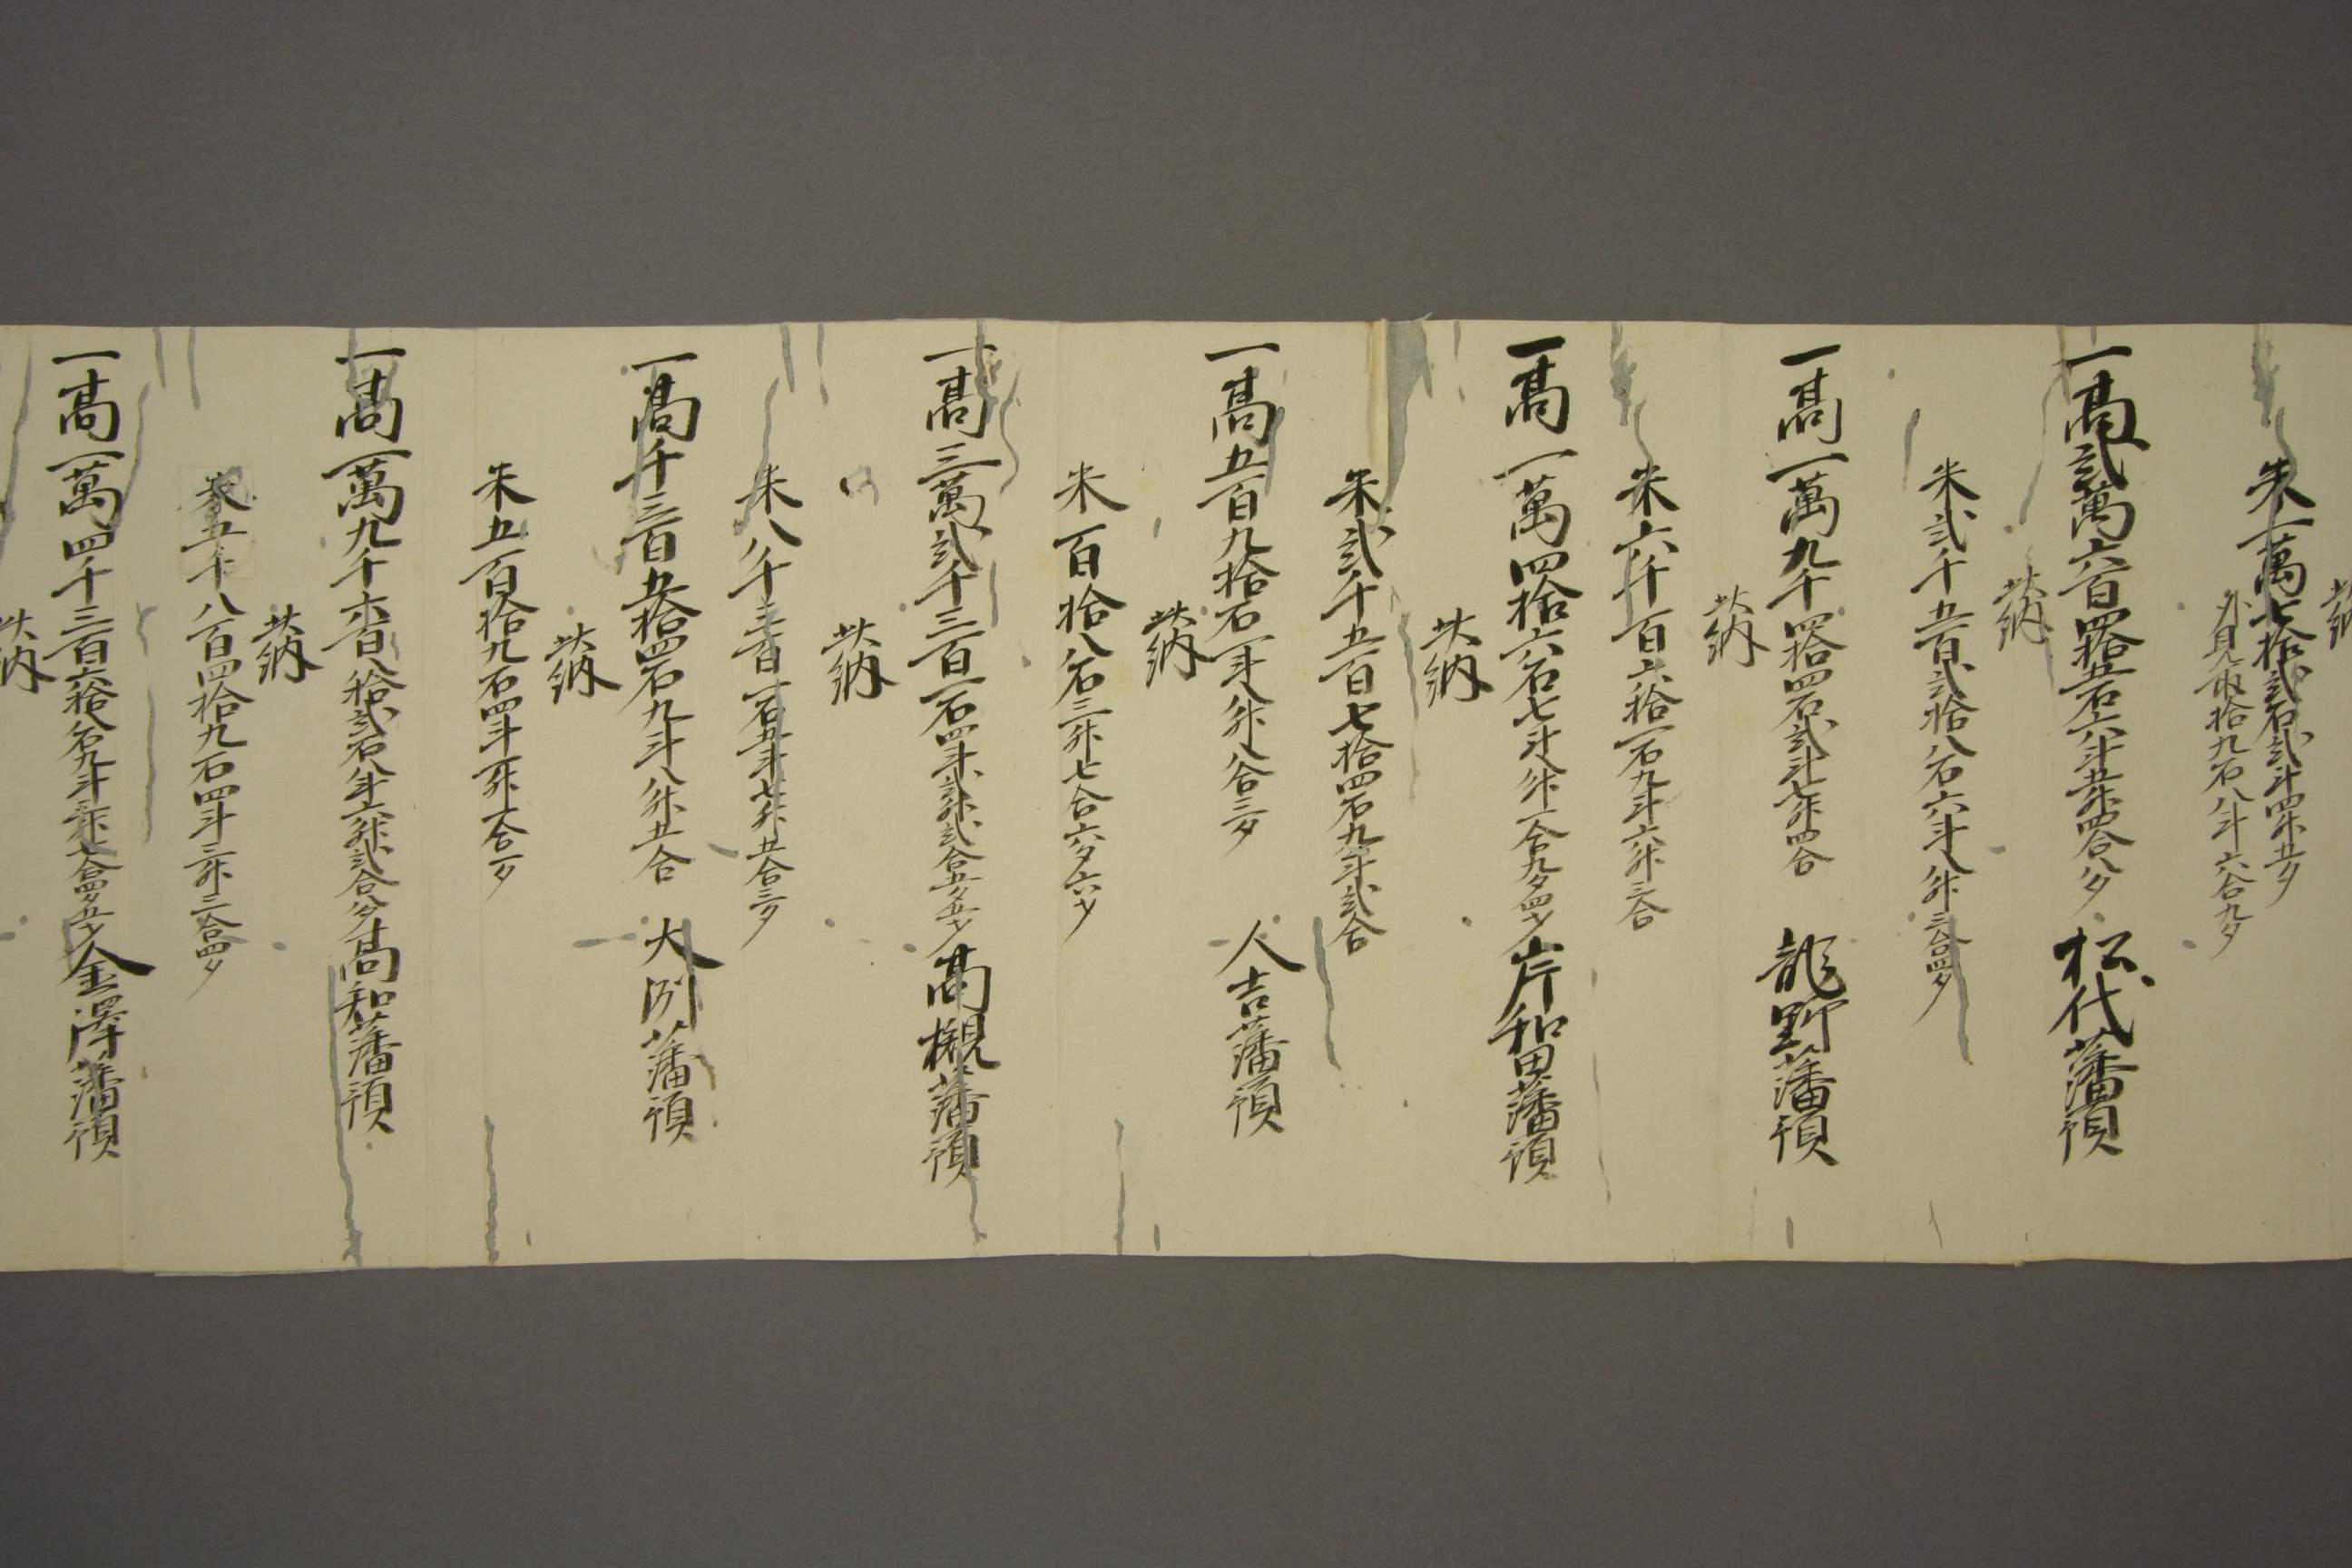 此納
米一萬七拾弐石弐斗四升五夕
外見取拾九石八斗六合九夕
一高弐萬六百四拾五石六斗五升四合八夕 松代藩預
此納
米弐千五百弐拾八石六斗八升三合四夕
一高一萬九千四拾四石弐斗七升四合 龍野藩預
此納
米六千百六拾一石九斗六升三合
一高一萬四拾六石七斗八升一合九夕四才 岸和田藩預
此納
米弐千五百七拾四石九斗弐合
一高五百九拾石一斗八升八合三夕 人吉藩預
此納
米百拾八石三升七合六夕六才
一高三萬弐千三百一石四斗弐升弐合五夕五才 高槻藩預
此納
米八千三百一石五斗七升五合三夕
一高千三百五拾四石九斗八升五合 大洲藩預
此納
米五百拾九石四斗一升六合一夕
一高一萬九千六百八拾弐石八斗六升弐合八夕 高知藩預
此納
米五千八百四拾九石四斗三升三合四夕
一高一萬四千三百六拾八石九斗三升七合四夕五才 金澤藩預
此納